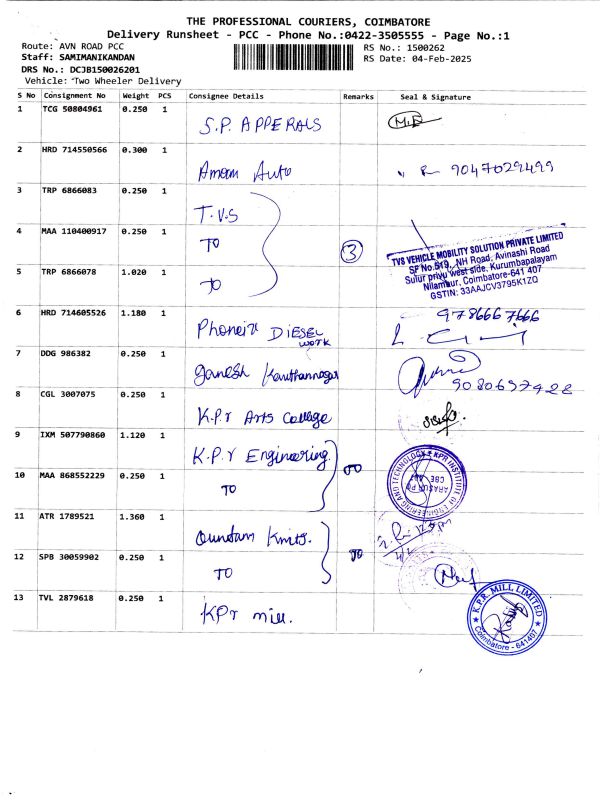 THE PROFESSIONAL COURIERS, COIMBATORE
Delivery Runsheet - PCC - Phone No.:0422-3505555 - Page No.:1
Route: AVN ROAD PCC
RS No.: 1500262
Staff: SAMIMANIKANDAN
RS Date: 04-Feb-2025
DRS No.: DCJB150026201
Vehicle: Two Wheeler Delivery
S No Consignment No Weight PCS Consignee Details Remarks Seal & Signature
1 TCG 50804961 0.250 1 S.P. APPERALS
2 HRD 714550566 0.300 1 Amman Auto 9047029499
3 TRP 6866083 0.250 1 T.V.S
4 MAA 110400917 0.250 1 TO 3
5 TRP 6866078 1.020 1 TO
TVS VEHICLE MOBILITY SOLUTION PRIVATE LIMITED
SF No.519, NH Road, Avinashi Road
Sulur privu west side, Kurumbapalayam
Nilambur, Coimbatore-641 407
GSTIN: 33AAJCV3795K1ZQ
6 HRD 714605526 1.180 1 Phoneix DIESEL work 9786667666
7 DDG 986382 0.250 1 Ganesh 9080697428
8 CGL 3007075 0.250 1 K.P.r Arts College
9 IXM 507790860 1.120 1 K.P.r Engineering.
10 MAA 868552229 0.250 1 TO
KPR INSTITUTE OF ENGINEERING AND TECHNOLOGY
11 ATR 1789521 1.360 1 Knits.
12 SPB 30059902 0.250 1 TO
13 TVL 2879618 0.250 1 KPr mill.
K.P.R. MILL LIMITED
Coimbatore - 641407